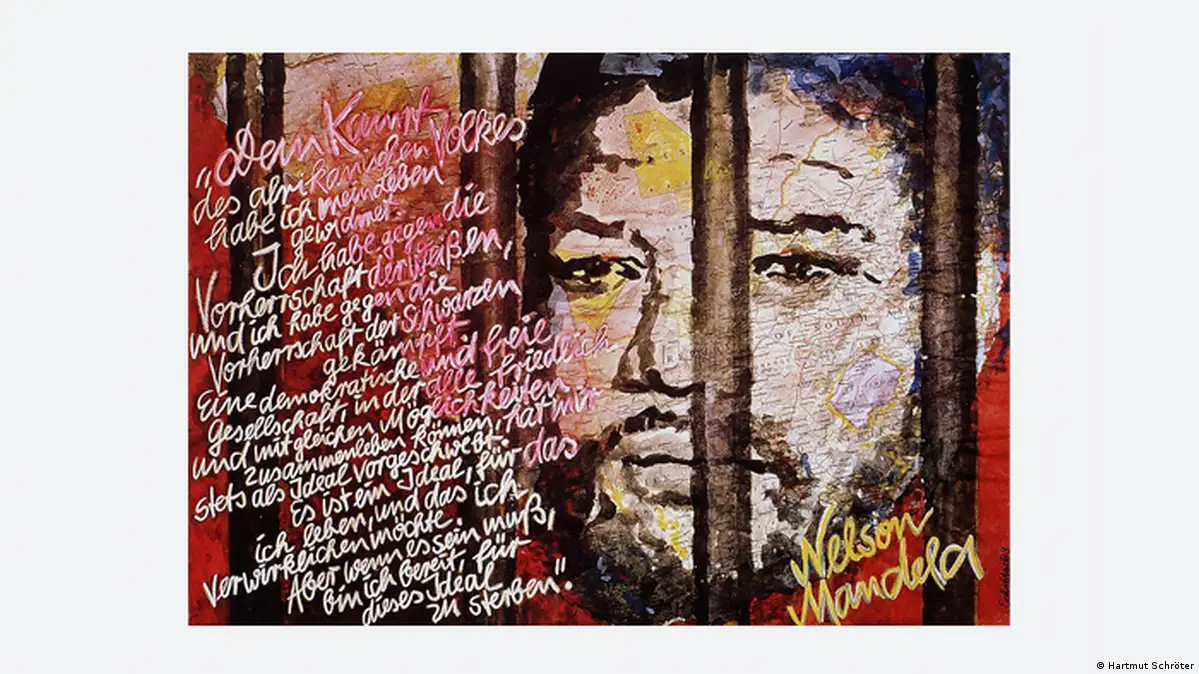 "Dem Kampf
des afrikanischen Volkes
habe ich mein Leben
gewidmet
Ich habe gegen die
Vorherrschaft der weißen,
und ich habe gegen die
Vorherrschaft der Schwarzen
gekämpft
Eine demokratische und freie
Gesellschaft, in der alle friedlich
und mit gleichen Möglichkeiten
zusammenleben können, hat mir
stets als Ideal vorgeschwebt.
Es ist ein Ideal, für das
ich leben, und das ich
verwirklichen möchte.
Aber wenn es sein muß,
bin ich bereit, für
dieses Ideal
zu sterben".
Nelson
Mandela
© Hartmut Schröter